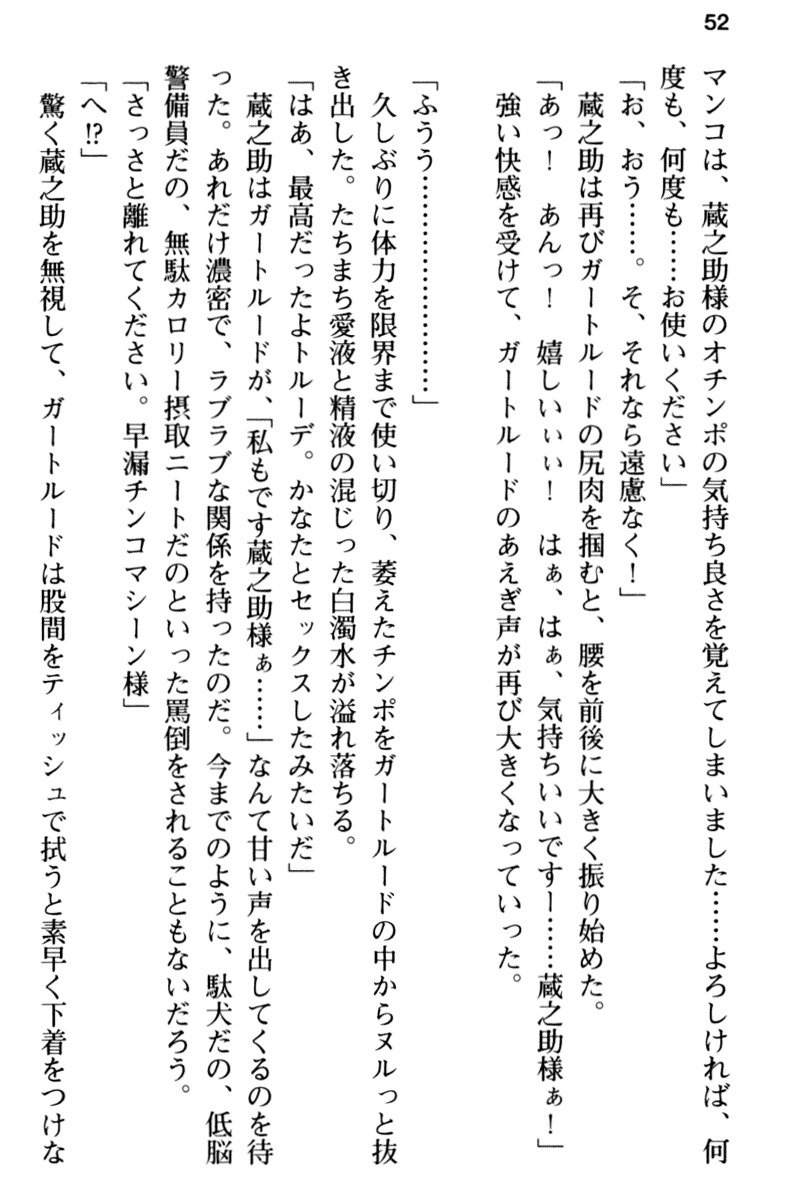 52
マンコは、蔵之助様のオチンポの気持ち良さを覚えてしまいました……よろしければ、何
度も、何度も……お使いください」
「お、おう……。そ、それなら遠慮なく！」
蔵之助は再びガートルードの尻肉を掴むと、腰を前後に大きく振り始めた。
「あっ！　あんっ！　嬉しいぃぃ！　はぁ、はぁ、気持ちいいですー……蔵之助様ぁ！」
強い快感を受けて、ガートルードのあえぎ声が再び大きくなっていった。
「ふうう……………………」
久しぶりに体力を限界まで使い切り、萎えたチンポをガートルードの中からヌルっと抜
き出した。たちまち愛液と精液の混じった白濁水が溢れ落ちる。
「はあ、最高だったよトルーデ。かなたとセックスしたみたいだ」
蔵之助はガートルードが、「私もです蔵之助様ぁ……」なんて甘い声を出してくるのを待
った。あれだけ濃密で、ラブラブな関係を持ったのだ。今までのように、駄犬だの、低脳
警備員だの、無駄カロリー摂取ニートだのといった罵倒をされることもないだろう。
「さっさと離れてください。早漏チンコマシーン様」
「へ!?」
驚く蔵之助を無視して、ガートルードは股間をティッシュで拭うと素早く下着をつけな